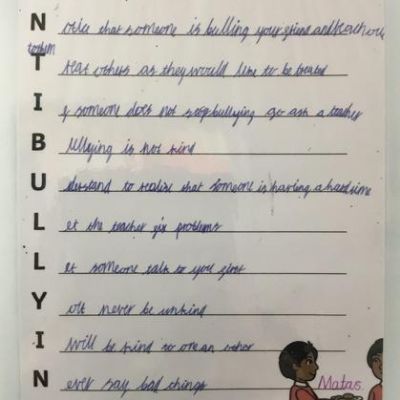 N otice that someone is bulling your friend and reach out
to them
T reat others as they would like to be treated
I f someone does not stop bullying go ask a teacher
B ullying is not kind
U nderstand to realise that someone is having a hard time
L et the teacher fix problems
L et someone talk to you first
Y never be unkind
I will be kind to one an other
N ever say bad things
Matas